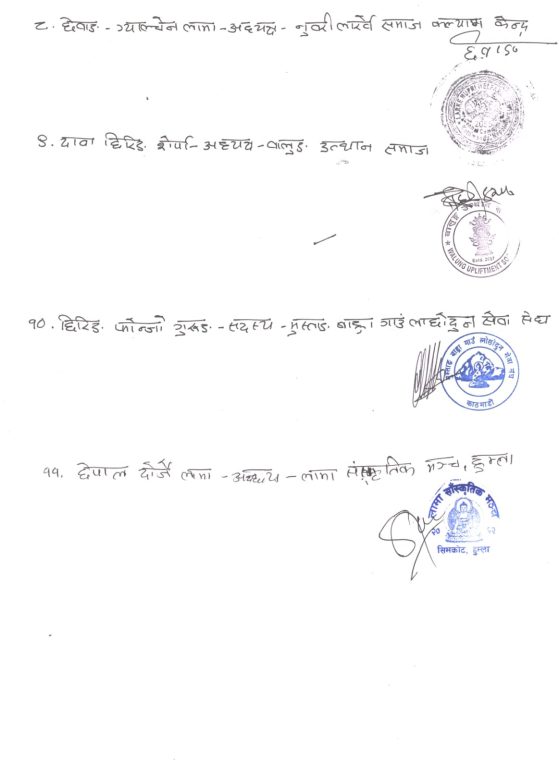 ८. छेवाङ - ग्याल्चेन लामा - अध्यक्ष - नुब्री लार्के समाज कल्याण केन्द्र
९. दावा छिरिङ शेर्पा - अध्यक्ष - वालुङ उत्थान समाज
WALUNG UPLIFTMENT SO
१०. छिरिङ फोन्जो गुरूङ - सदस्य - मुस्ताङ बाह्रा गाउं लाछोदुन सेवा संघ
काठमाडौं
११. छेपाल दोर्जे लामा - अध्यक्ष - लामा सांस्कृतिक मञ्च, हुम्ला
लामा साँस्कृतिक मञ्च
सिमकोट, हुम्ला